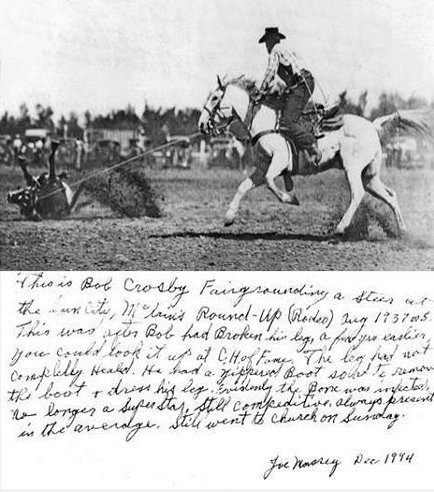 This is Bob Crosby Fairgrounding a Steer at
the Sun City, McLain's Round-Up (Rodeo) Aug 1937 or 5.
This was after Bob had Broken his leg a few yrs earlier,
you could look it up at C. H of Fame. The leg had not
completly Heald. He had a zippered Boot so he to remove
the boot & dress his leg. Evidently the Bone was infected,
no longer a Super Star, Still Compeditive, always present
in the average. Still went to Church on Sunday.
Joe Dec 1994